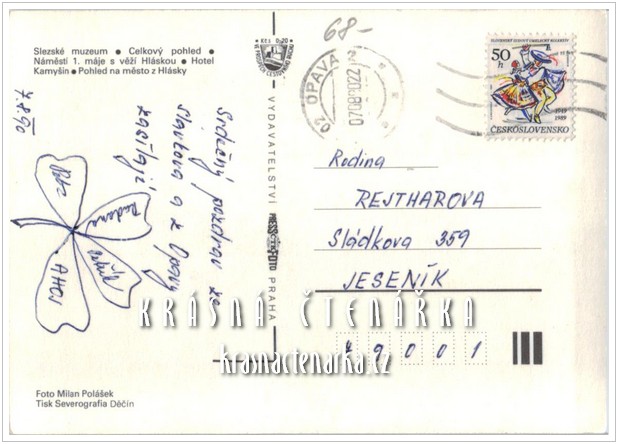 Slezské muzeum ● Celkový pohled ●
Náměstí 1. máje s věží Hláskou ● Hotel
Kamyšin ● Pohled na město z Hlásky
Kčs 0,20
VE PROSPĚCH CESTOVNÍHO RUCHU
68-
OPAVA 2
50
h
1949
1989
ČESKOSLOVENSKO
7.8.90
Srdečný pozdrav ze
slavkova a z Opavy
zasílají
Petr
Radana
AHOJ
VYDAVATELSTVÍ PRESSFOTO PRAHA
Rodina
REJTHAROVA
Sládkova 359
JESENÍK
79001
KRÁSNÁ ČTENÁŘKA
krasnactenarka.cz
Foto Milan Polášek
Tisk Severografia Děčín